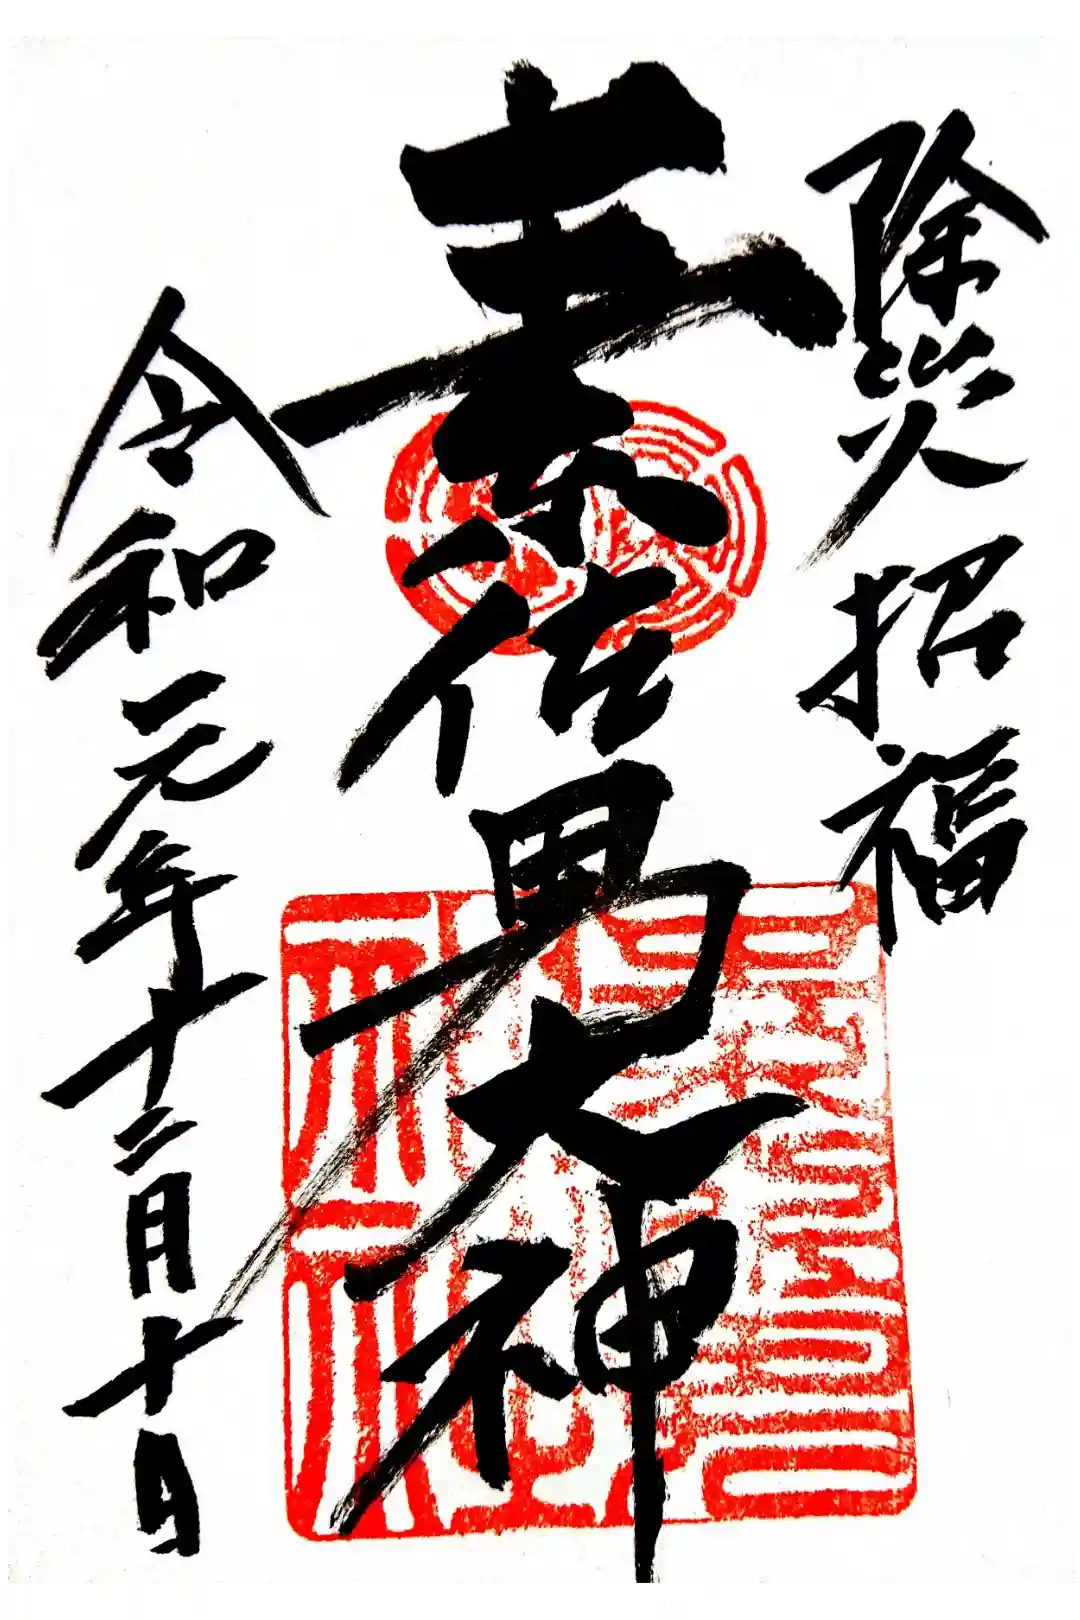 除災招福
素佐男大神
令和元年十二月十日